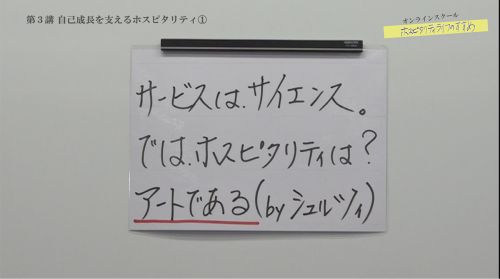 第3講 自己成長を支えるホスピタリティ①
オンラインスクール
ホスピタリティライフのすすめ
サービスは、サイエンス。
では、ホスピタリティは?
アートである(by シュルツィ)